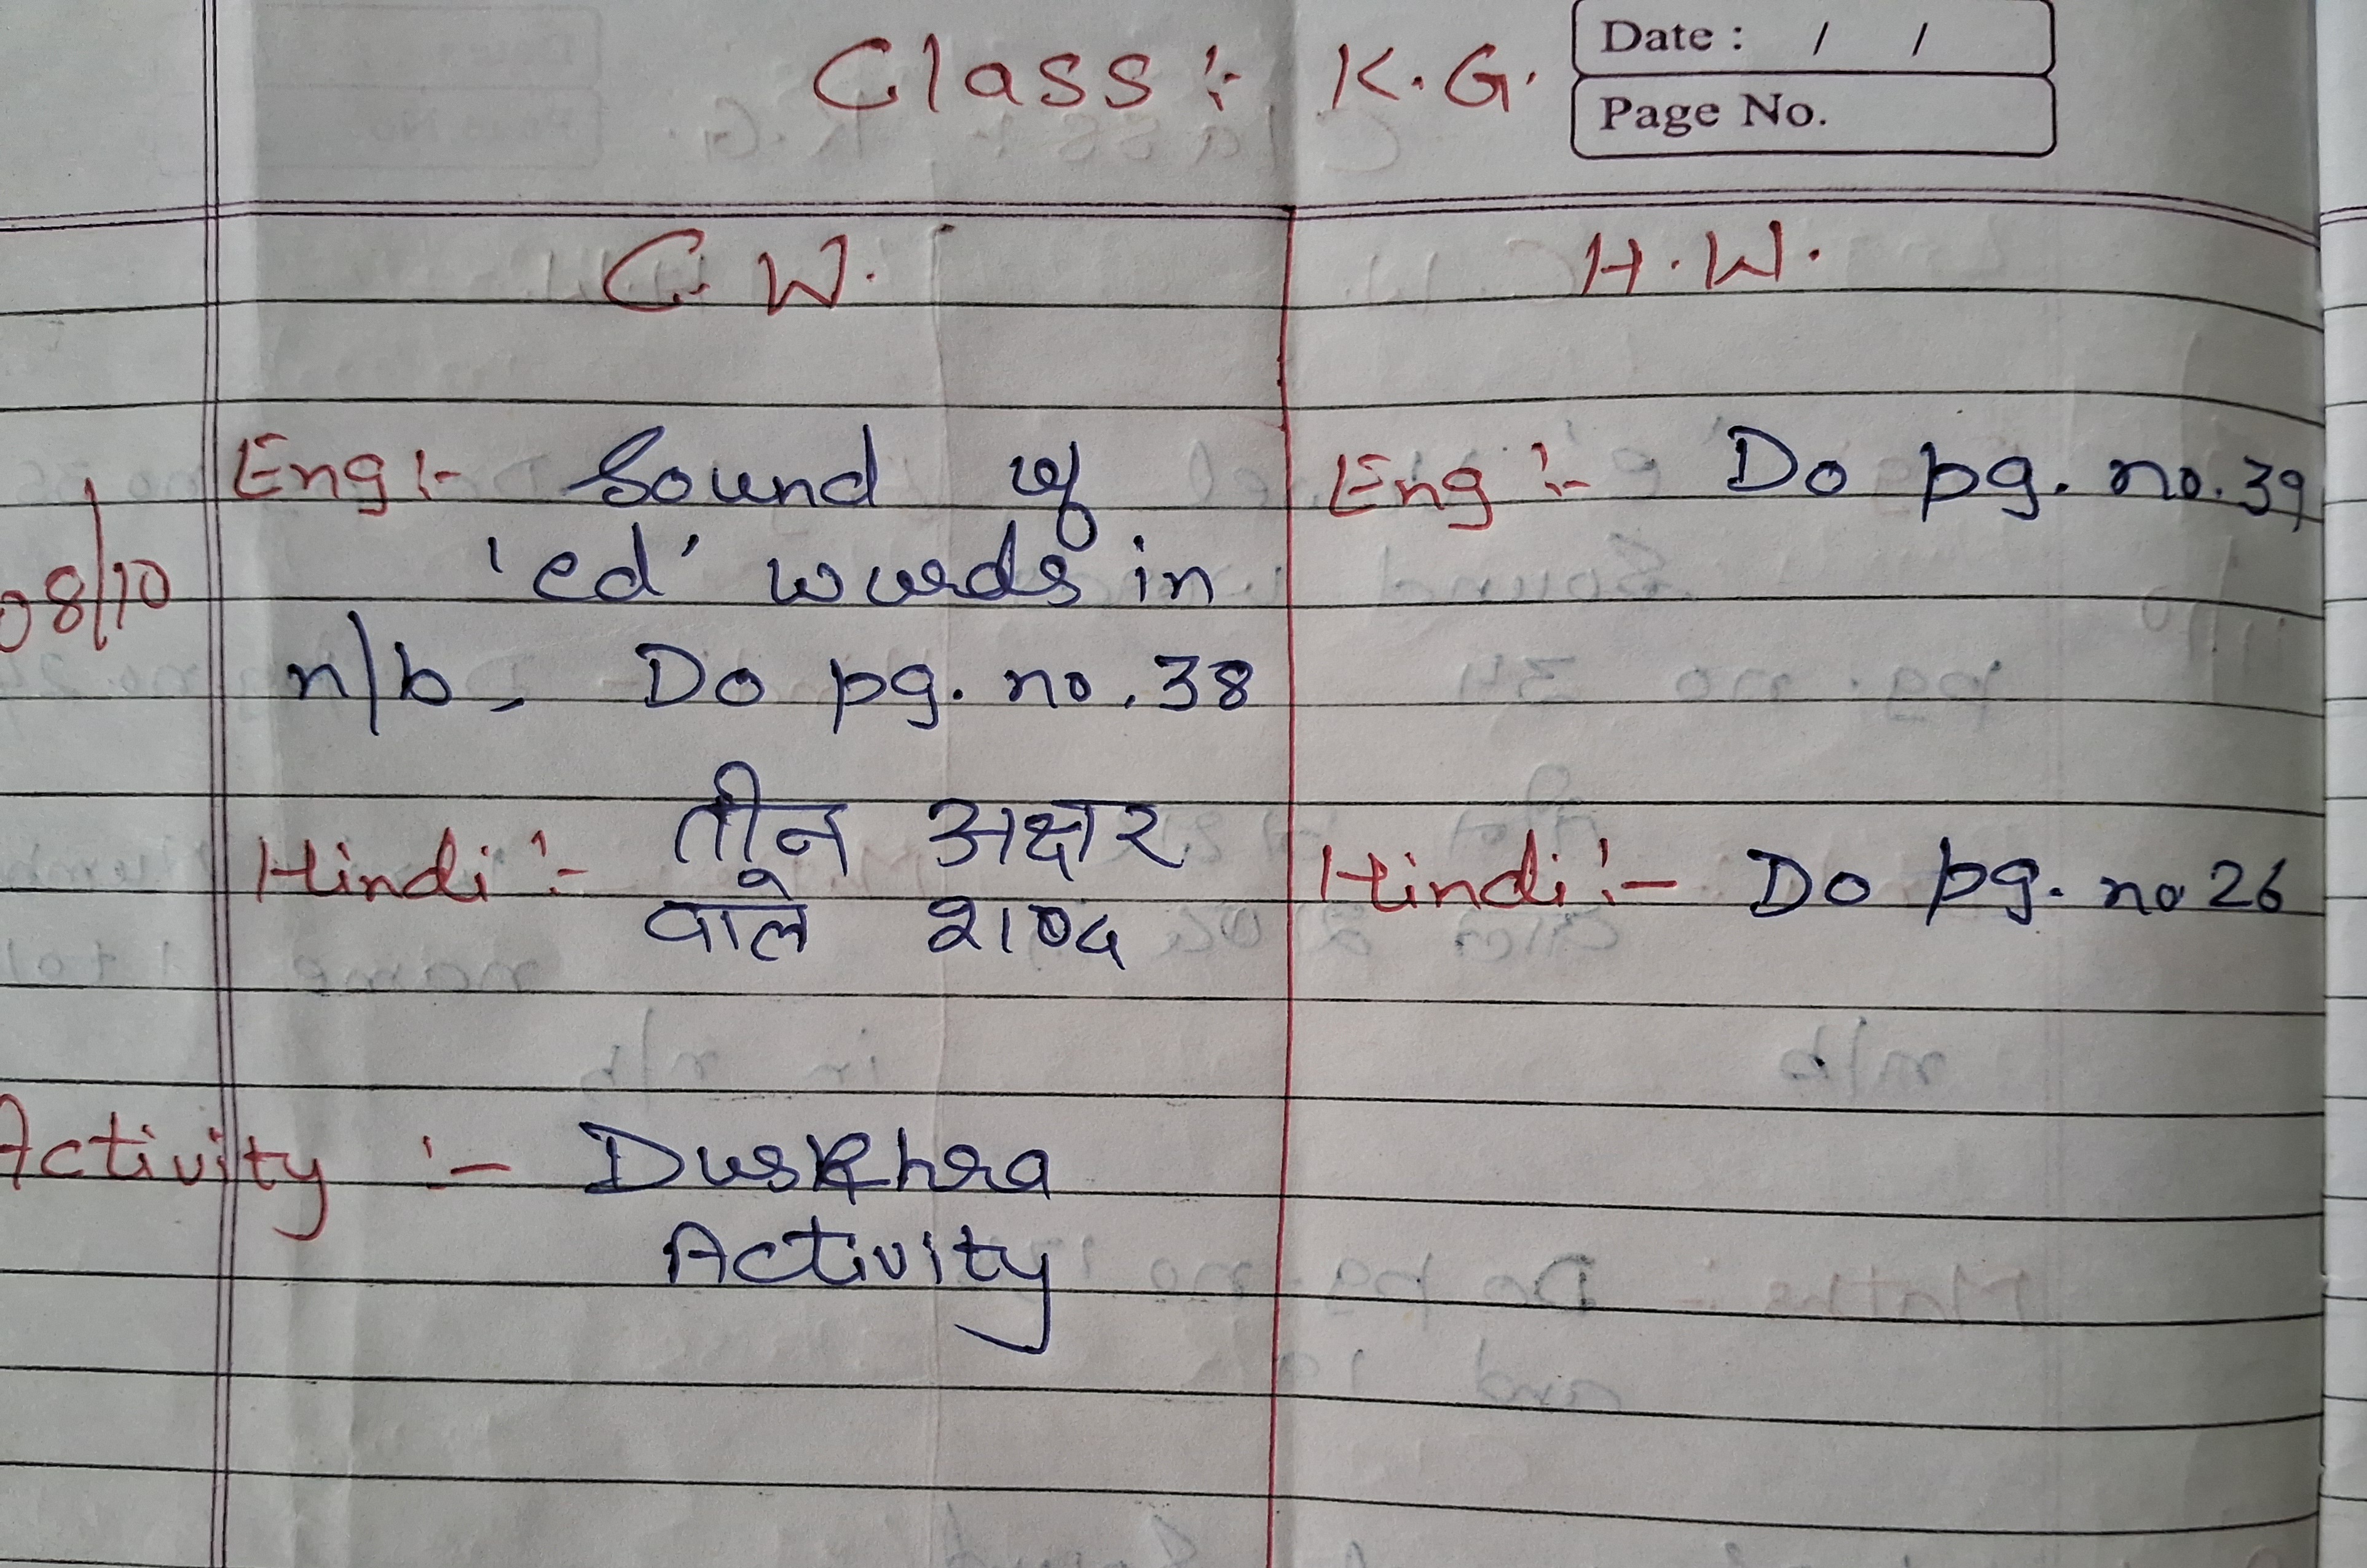 Class :- K.G.
Date : / /
Page No.
C.W.
H.W.
08/10
Eng :- Sound of
'ed' words in
n/b, Do pg. no. 38
Eng :- Do pg. no. 39
Hindi :- तीन अक्षर
वाले शब्द
Hindi :- Do pg. no 26
Activity :- Duskhra
Activity